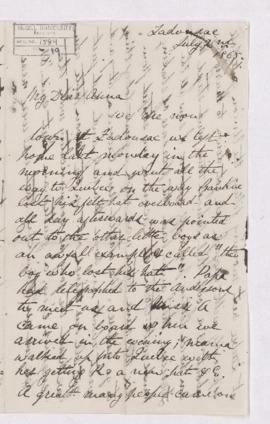 McGILL UNIVERSITY
Tadousac
July
1865
My Dear Anna
We are now
down at Tadousac we left
home last monday in the
morning and went all the
way to Quebec on the way Frankie
lost his felt hat overboard and
all day afterwards was pointed
out to the other little boys as
an awful example & called "the
boy who lost his hat". Papa
had telegraphed to the Andersons
to meet us and Miss A
came on board when we
arrived in the evening; mama
walked up into Quebec with
her getting a new hat &c.
A great many people came on